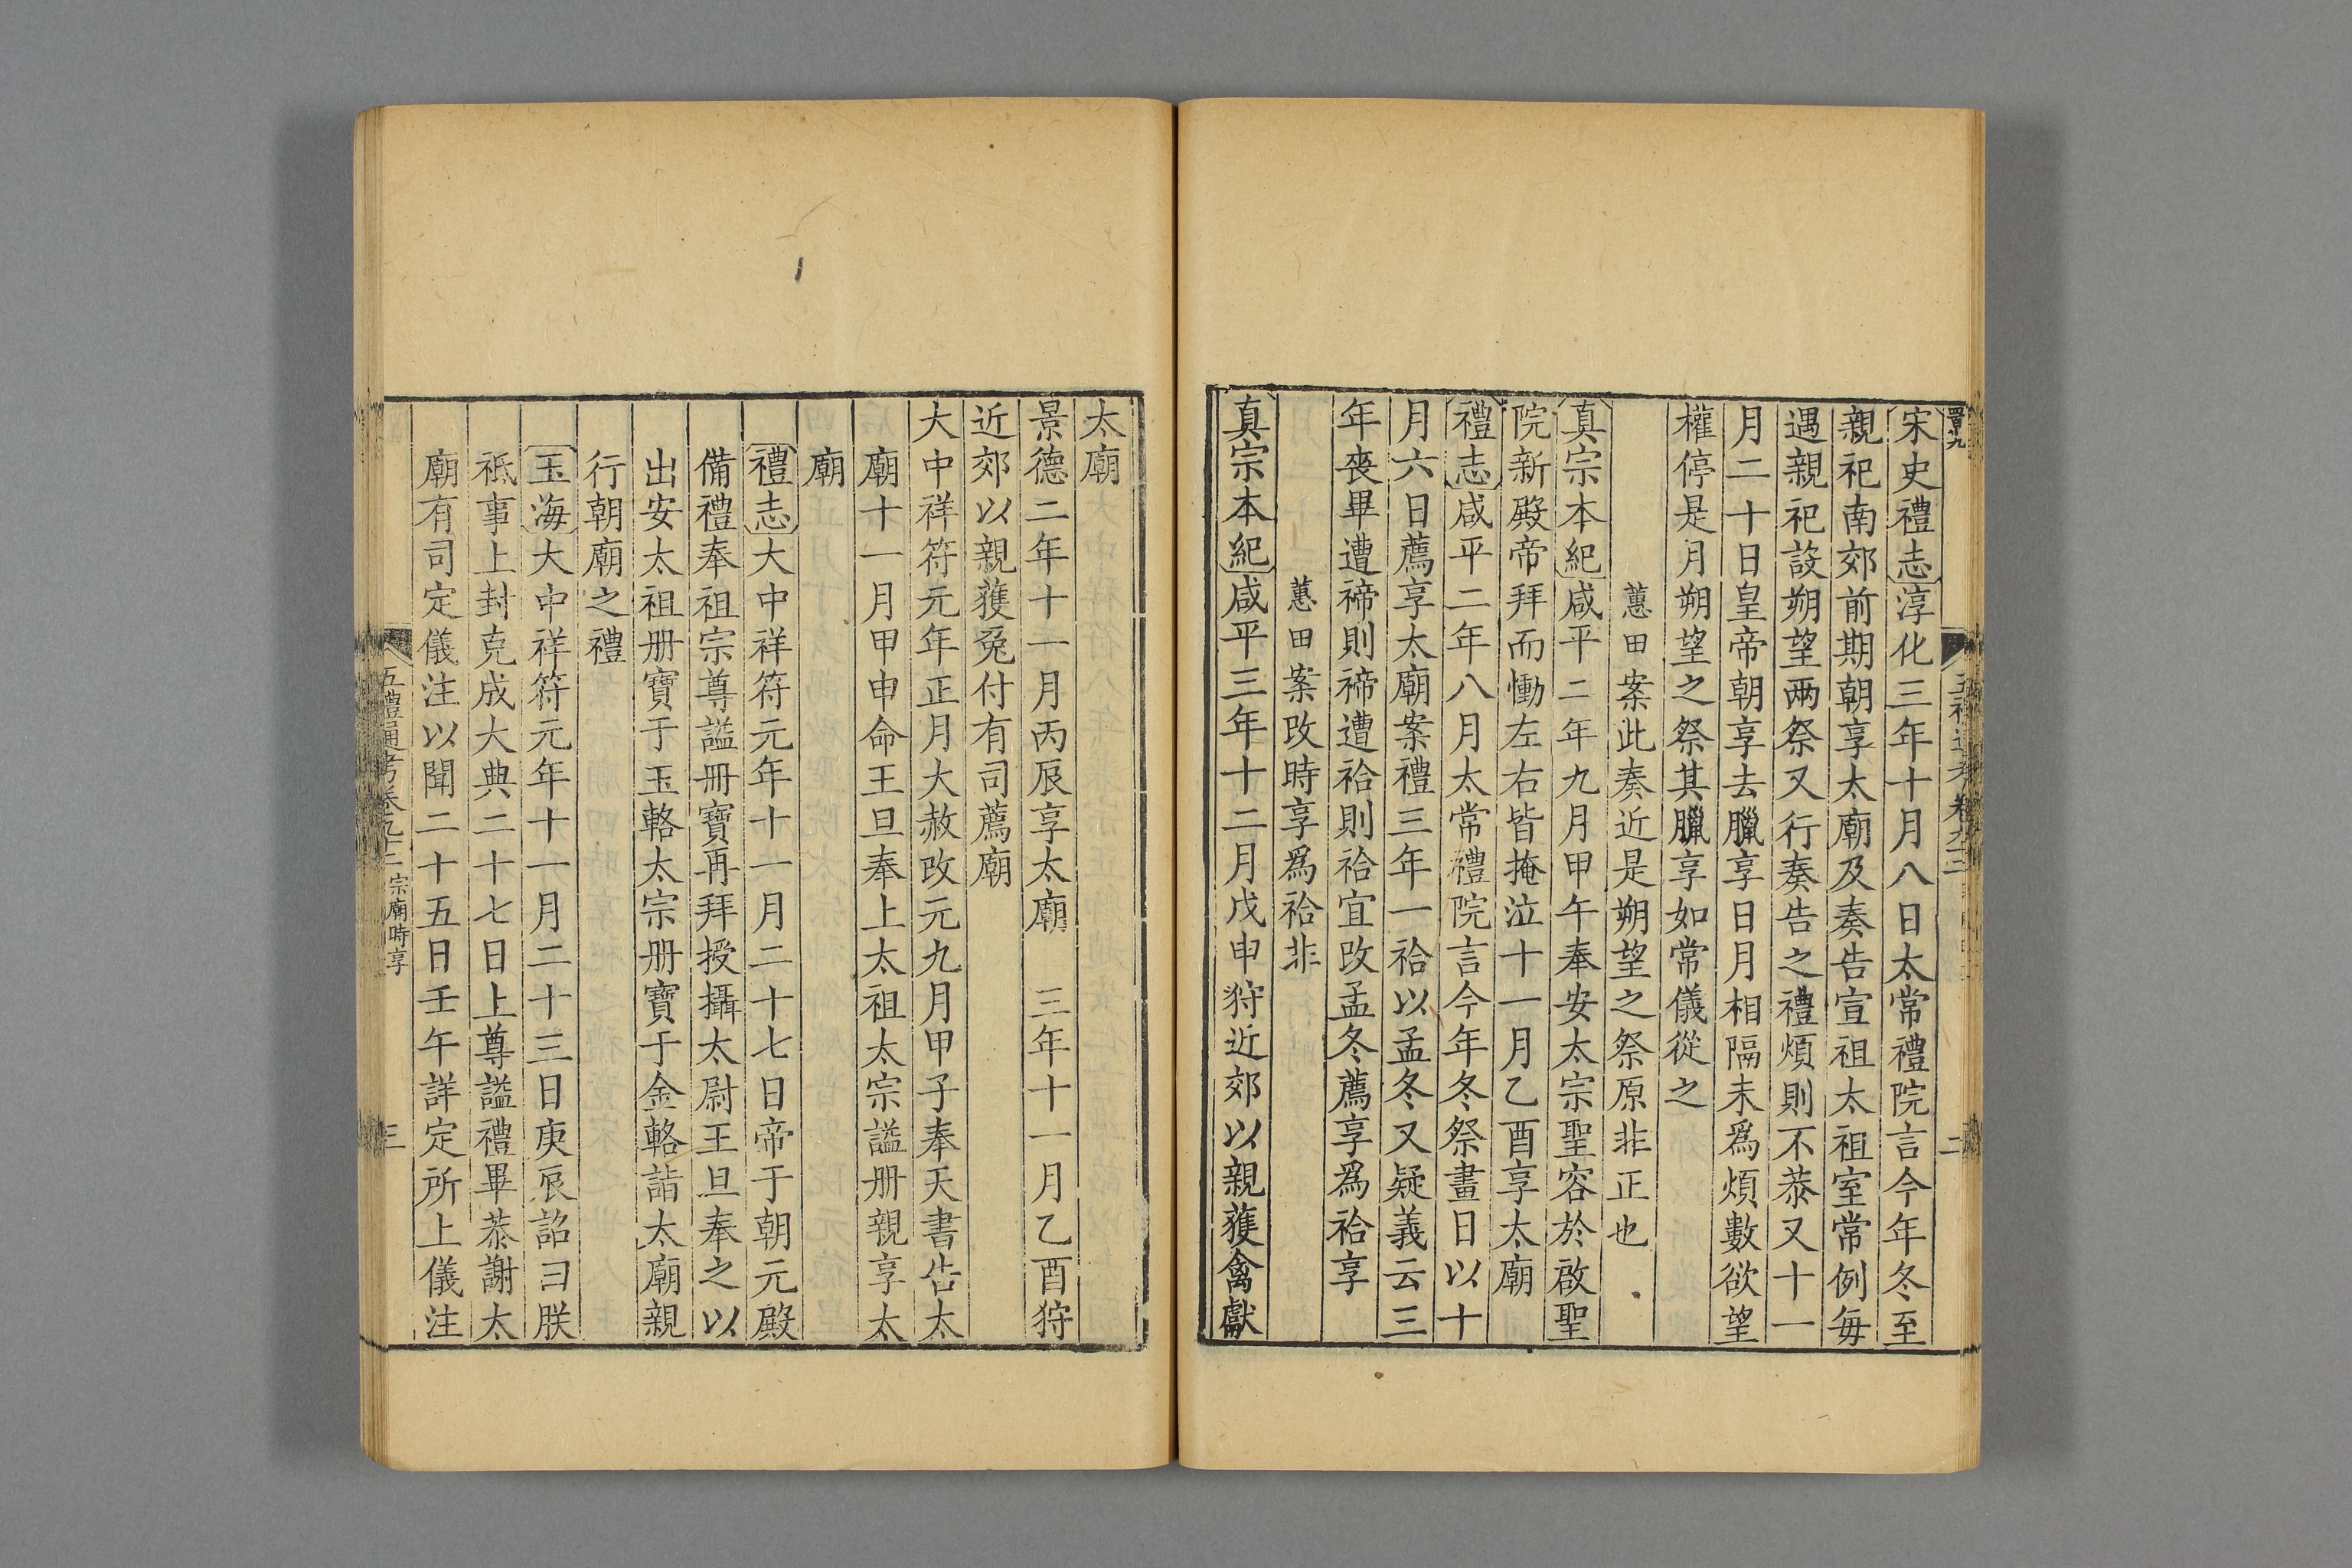 宋史禮志淳化三年十月八日太常禮院言今年冬至
親祀南郊前期朝享太廟及奏告宣祖太祖室常例每
遇親祀設朔望兩祭又行奏告之禮煩則不恭又十一
月二十日皇帝朝享去臘享日月相隔未爲煩數欲望
權停是月朔望之祭其臘享如常儀從之
蕙田案此奏近是朔望之祭原非正也
真宗本紀咸平二年九月甲午奉安太宗聖容於啟聖
院新殿帝拜而慟左右皆掩泣十一月乙酉享太廟
禮志咸平二年八月太常禮院言今年冬祭畫日以十
月六日薦享太廟案禮三年一祫以孟冬又疑義云三
年喪畢遭禘則禘遭祫則祫宜改孟冬薦享爲祫享
蕙田案改時享爲祫非
真宗本紀咸平三年十二月戊申狩近郊以親獲禽獻
太廟
景德二年十一月丙辰享太廟 三年十一月乙酉狩
近郊以親獲兔付有司薦廟
大中祥符元年正月大赦改元九月甲子奉天書告太
廟十一月甲申命王旦奉上太祖太宗謚册親享太
廟
禮志大中祥符元年十一月二十七日帝于朝元殿
備禮奉祖宗尊謚冊寶再拜授攝太尉王旦奉之以
出安太祖册寶于玉輅太宗册寶于金輅詣太廟親
行朝廟之禮
玉海大中祥符元年十一月二十三日庚辰詔曰朕
祗事上封克成大典二十七日上尊謚禮畢恭謝太
廟有司定儀注以聞二十五日壬午詳定所上儀注
五禮通考卷九十二 宗廟時享 三